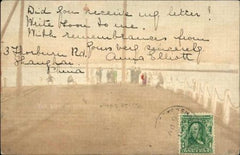 Did you receive my letter?
Write soon to me.
With remembrances from
Yours very sincerely
3 Thorburn Rd. Anna Elliott
Shanghai
China